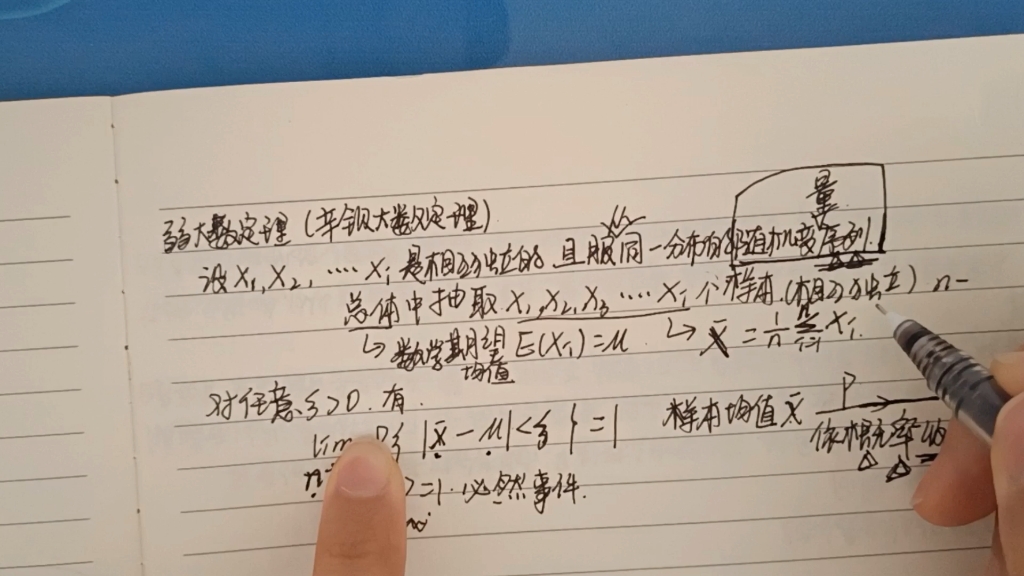 弱大数定理(辛钦大数定理)
量
设X₁,X₂,····Xᵢ是相互独立的 且服同一分布的随机变序列
总体中抽取X₁,X₂,X₃····Xᵢ个样本.(相互独立) n-
↳数学期望E(Xᵢ)=μ. ↳ x̄ = 1/n Σ Xᵢ.
均值
对任意ξ>0.有. 样本均值x̄ P
|x̄-μ|<ξ}=1 依概率
=1.必然事件.